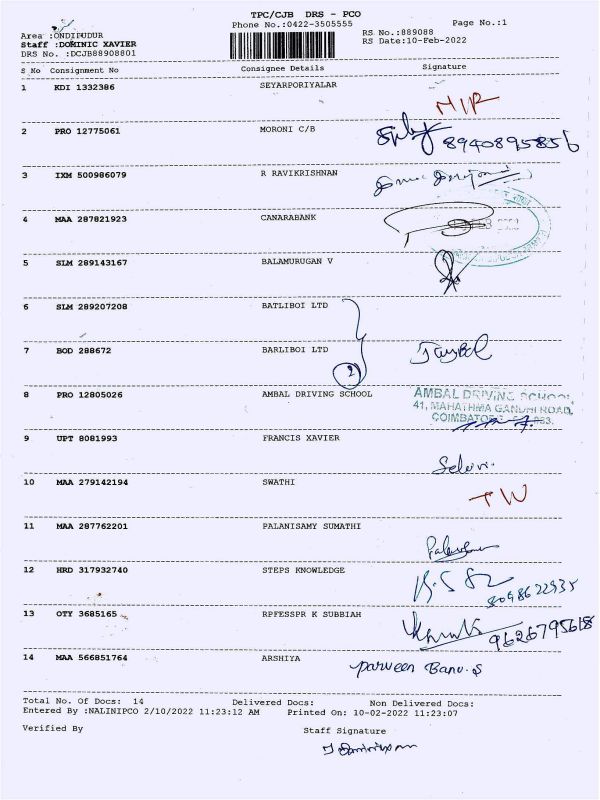 TPC/CJB DRS - PCO
Phone No.:0422-3505555
Page No.:1
Area :ONDIPUDUR
RS No.:889088
Staff :DOMINIC XAVIER
RS Date:10-Feb-2022
DRS No. :DCJB88908801
S No Consignment No Consignee Details Signature
1 KDI 1332386 SEYARPORIYALAR
NIR
2 PRO 12775061 MORONI C/B
8940895856
3 IXM 500986079 R RAVIKRISHNAN
4 MAA 287821923 CANARABANK
5 SLM 289143167 BALAMURUGAN V
6 SLM 289207208 BATLIBOI LTD
7 BOD 288672 BARLIBOI LTD
2
8 PRO 12805026 AMBAL DRIVING SCHOOL
AMBAL DRIVING SCHOOL
41, MAHATHMA GANDHI ROAD,
9 UPT 8081993 FRANCIS XAVIER
Selvi.
10 MAA 279142194 SWATHI
TW
11 MAA 287762201 PALANISAMY SUMATHI
12 HRD 317932740 STEPS KNOWLEDGE
13 OTY 3685165 RPFESSPR K SUBBIAH
9626795618
14 MAA 566851764 ARSHIYA
Parveen Banu.S
Total No. Of Docs: 14 Delivered Docs: Non Delivered Docs:
Entered By :NALINIPCO 2/10/2022 11:23:12 AM Printed On: 10-02-2022 11:23:07
Verified By Staff Signature